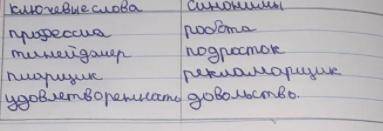 ключевые слова синонимы
профессия работа
тинейджер подросток
пиарщик рекламорщик
удовлетворенность довольство.